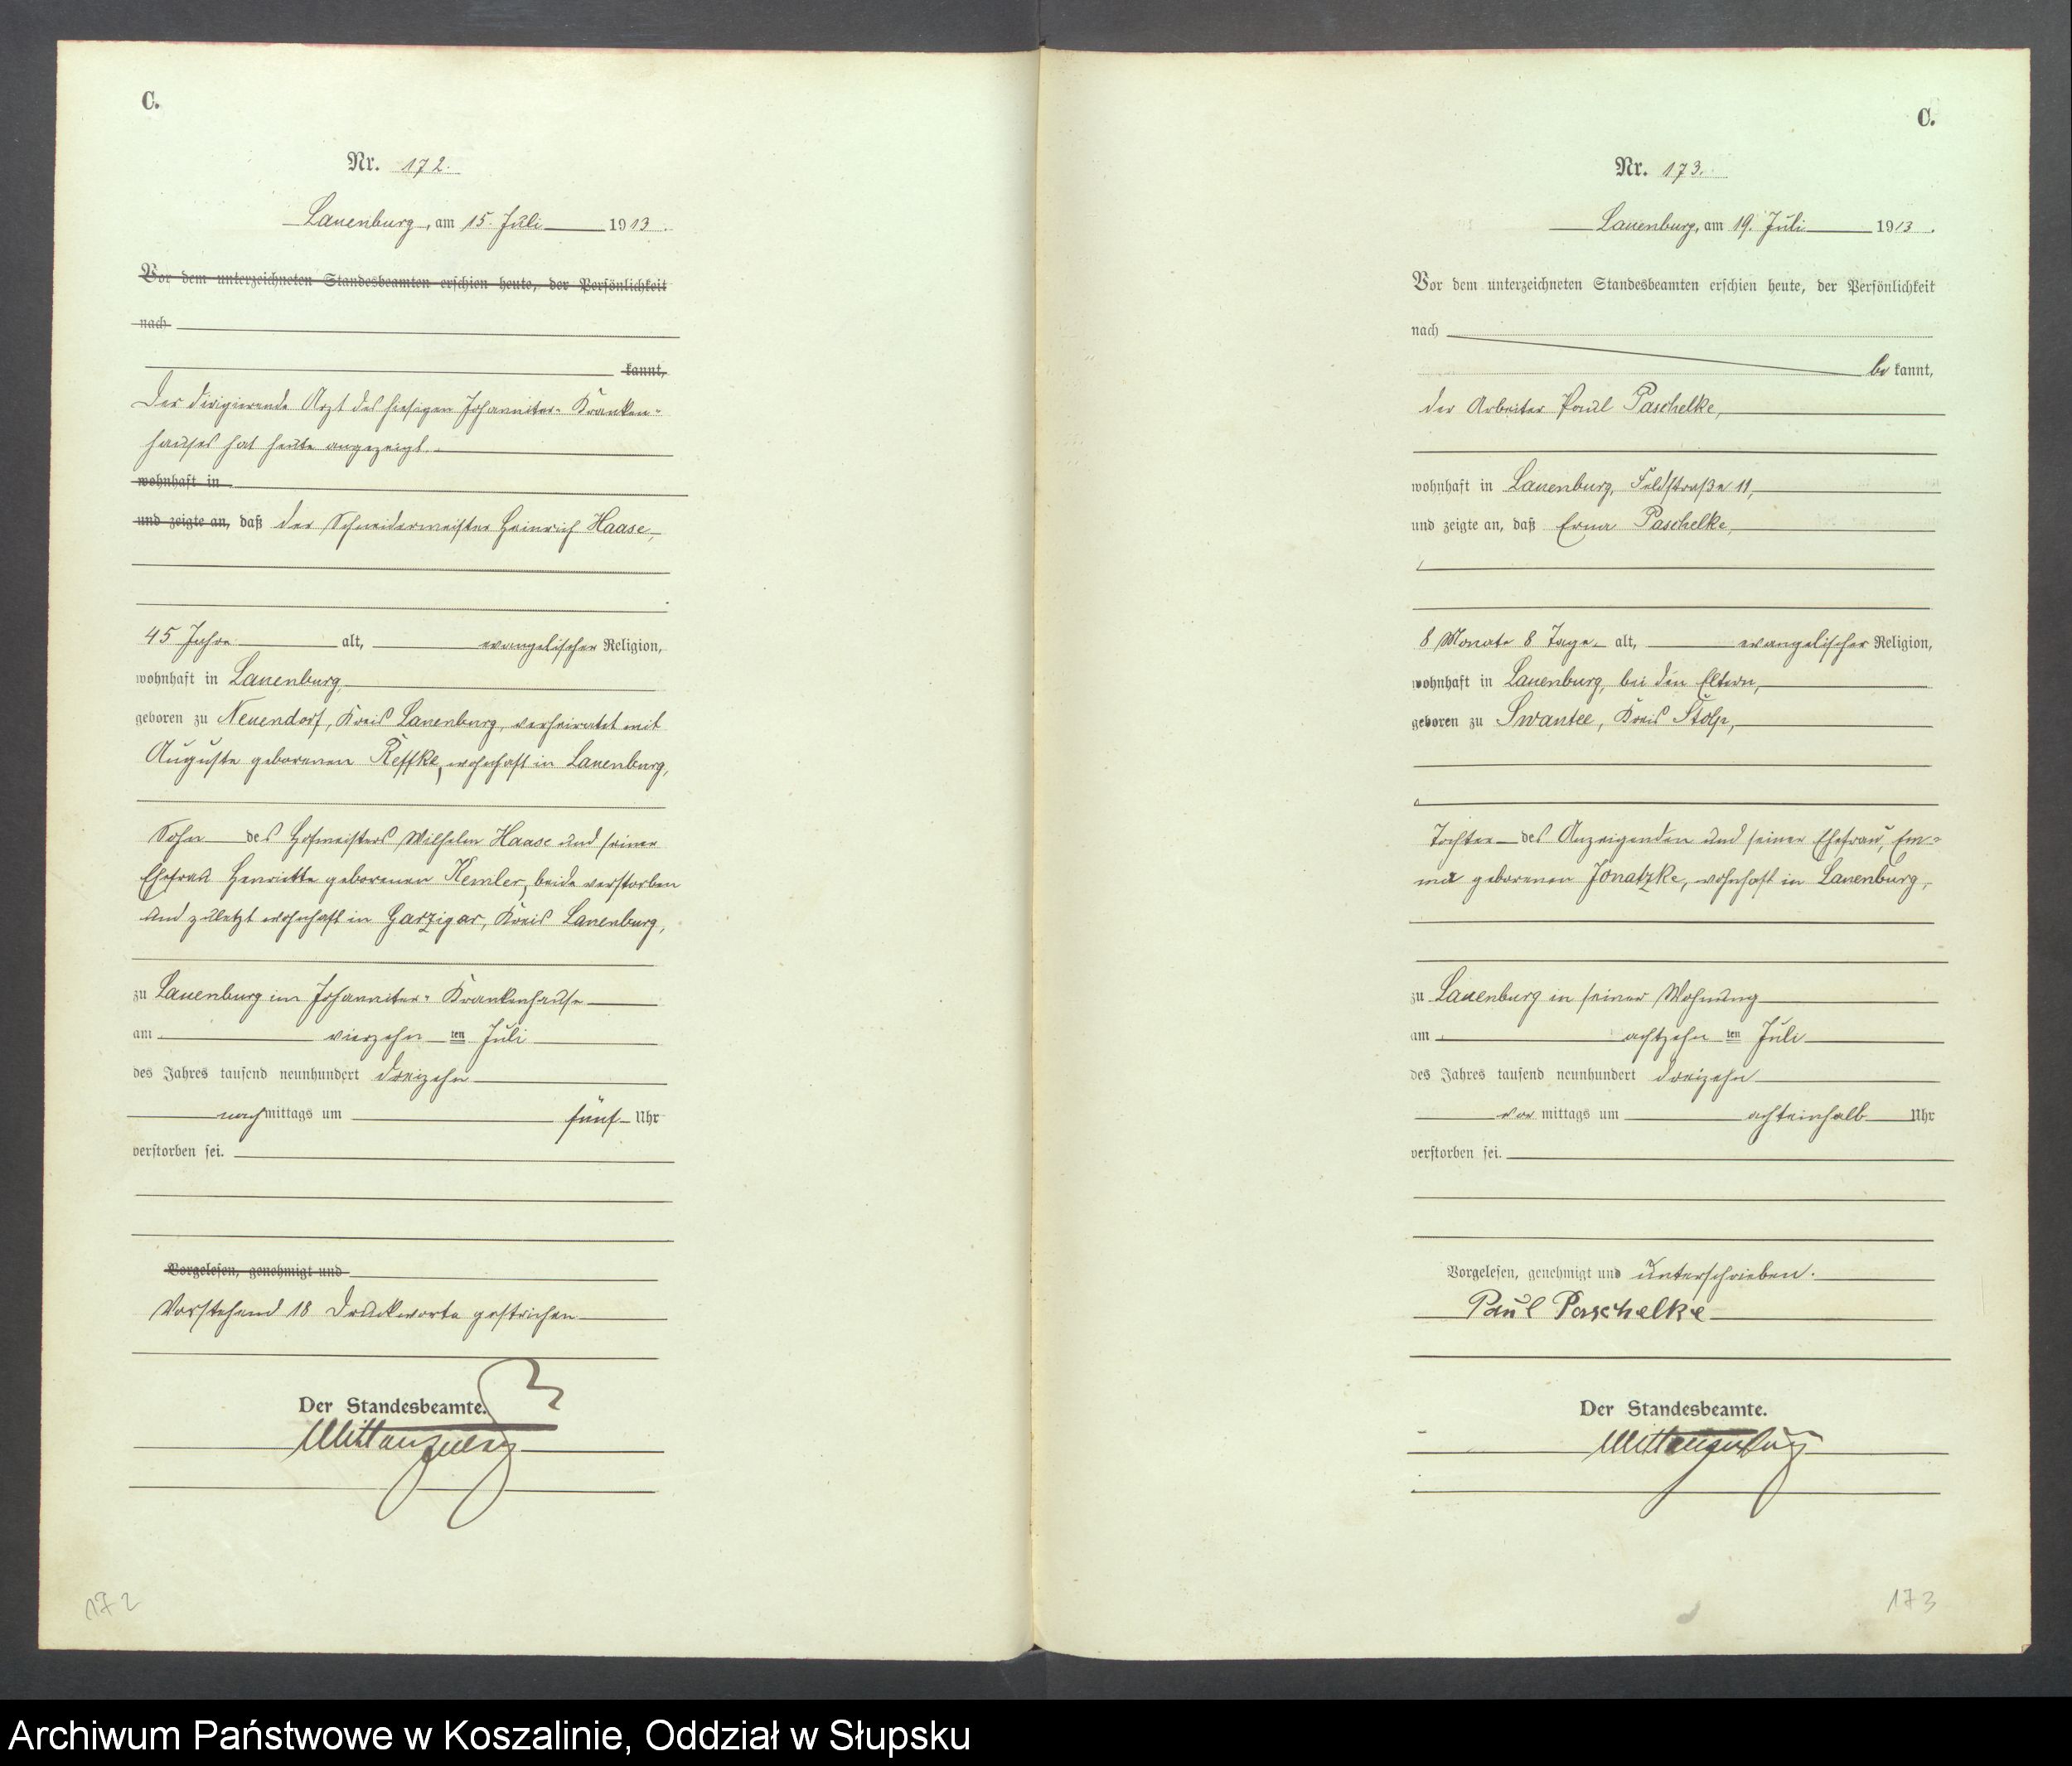 C.
Nr. 172.
Lauenburg, am 15. Juli 1913.
Vor dem unterzeichneten Standesbeamten erschien heute, der Persönlichkeit
nach
kannt,
Der dirigierende Arzt des hiesigen Johanniter-Kranken-
hauses hat heute angezeigt.
wohnhaft in
und zeigte an, daß der Schneidermeister Heinrich Haase,
45 Jahre alt, evangelischer Religion,
wohnhaft in Lauenburg,
geboren zu Neuendorf, Kreis Lauenburg, verheiratet mit
Auguste geborenen Reffke, wohnhaft in Lauenburg,
Sohn des Hofmeisters Wilhelm Haase und seiner
Ehefrau Henriette geborenen Kemler, beide verstorben
und zuletzt wohnhaft in Garzigar, Kreis Lauenburg,
zu Lauenburg im Johanniter-Krankenhause
am vierzehn ten Juli
des Jahres tausend neunhundert dreizehn
nachmittags um fünf Uhr
verstorben sei.
Vorgelesen, genehmigt und
Vorstehend 18 Druckworte gestrichen
Der Standesbeamte.
172
C.
Nr. 173.
Lauenburg, am 19. Juli 1913.
Vor dem unterzeichneten Standesbeamten erschien heute, der Persönlichkeit
nach
be kannt,
der Arbeiter Paul Paschelke,
wohnhaft in Lauenburg, Feldstraße 11,
und zeigte an, daß Erna Paschelke,
8 Monate 8 Tage alt, evangelischer Religion,
wohnhaft in Lauenburg, bei den Eltern,
geboren zu Swantee, Kreis Stolp,
Tochter des Anzeigenden und seiner Ehefrau, Em-
ma geborenen Jonatzke, wohnhaft in Lauenburg,
zu Lauenburg in seiner Wohnung
am achtzehn ten Juli
des Jahres tausend neunhundert dreizehn
vor mittags um achteinhalb Uhr
verstorben sei.
Vorgelesen, genehmigt und unterschrieben.
Paul Paschelke
Der Standesbeamte.
173
Archiwum Państwowe w Koszalinie, Oddział w Słupsku